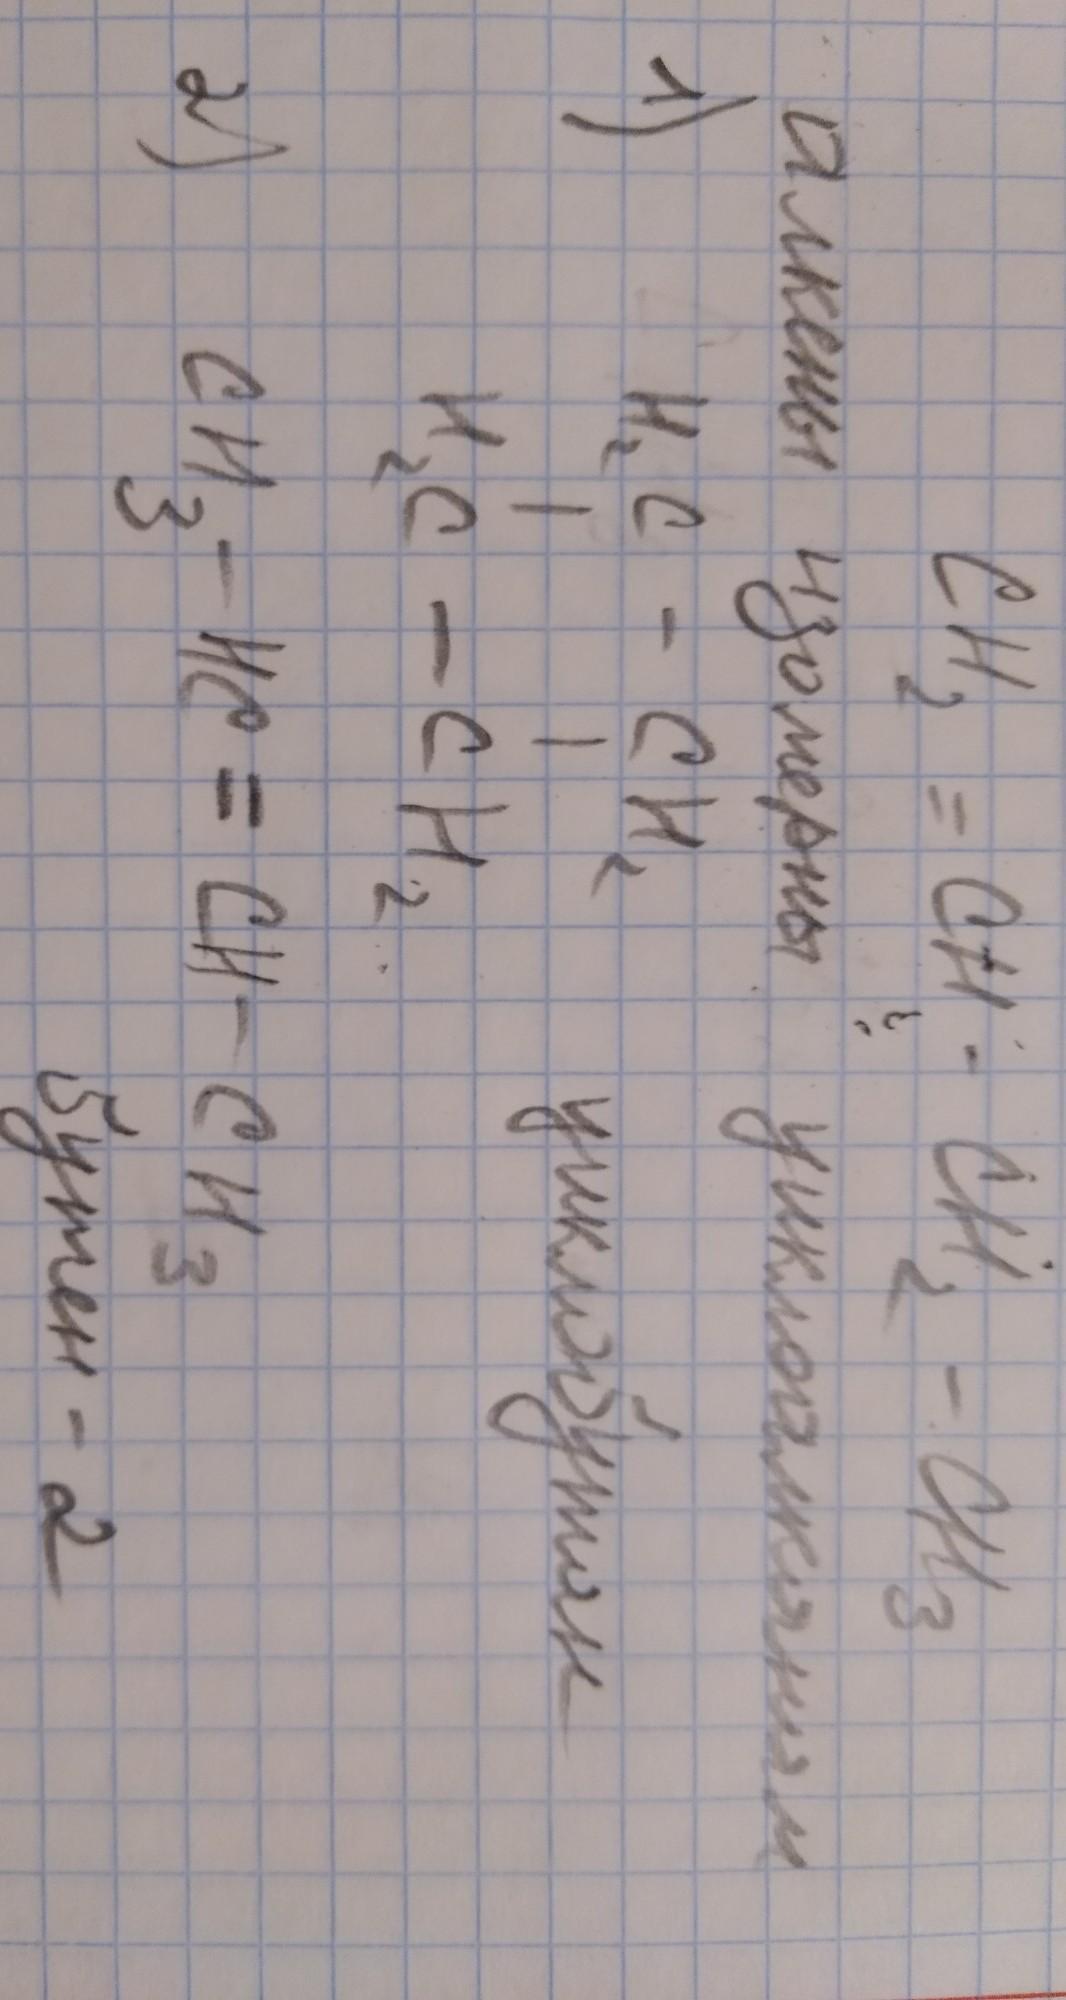 CH₂ = CH - CH₂ - CH₃
алкены изомерны циклоалканам
1) H₂C - CH₂
| |
H₂C - CH₂
циклобутан
2) CH₃ - HC = CH - CH₃
бутен - 2